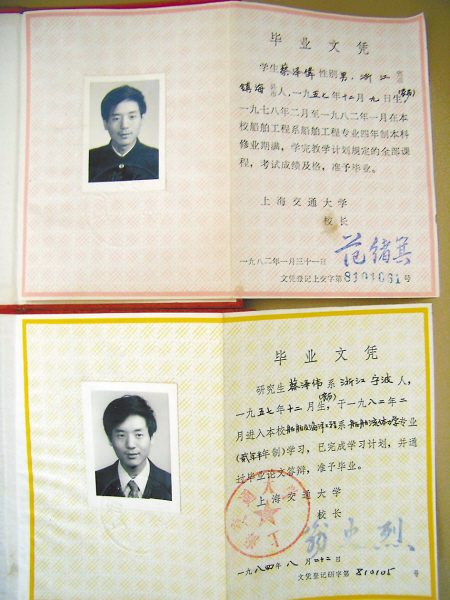 毕业文凭
学生蔡泽伟性别男，浙江省
镇海县市人，一九五七年十二月九日生，
一九七八年二月至一九八二年一月在本
校船舶工程系船舶工程专业四年制本科
修业期满，学完教学计划规定的全部课
程，考试成绩及格，准予毕业。
上海交通大学
校长
范绪箕
一九八二年一月三十一日
文凭登记上交字第8101061号
毕业文凭
研究生蔡泽伟系浙江宁波人，
一九五七年十二月生，于一九八二年二
月进入本校船舶及海洋工程系船舶流体力学专业
(贰年半制)学习，已完成学习计划，并通
过毕业论文答辩，准予毕业。
上海交通大学
校长
翁史烈
一九八四年八月二十二日
文凭登记研字第810105号